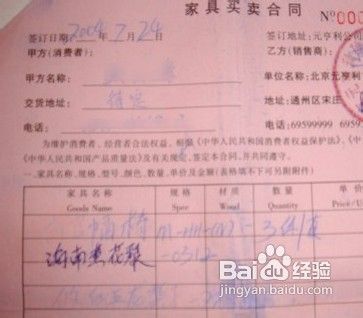 家具买卖合同 Nº00
签订日期 2004年7月24 签订地址：元亨利公司
甲方(消费者)： 乙方(销售商)：
甲方名称： 单位名称：北京元亨利
交货地址： 待定 地址：通州区宋庄
电话： 电话：69599999 6959
为维护消费者、经营者合法权益，根据《中华人民共和国消费者权益保护法》、
《中华人民共和国产品质量法》及有关规定，签定本合同，并共同遵守。
一.家具名称、规格、型号、颜色、数量、单价及金额(表格填不下可另附附件)
家具名称 规格 材质 数量 单价
Goods Name Spec Wood Quantity U
海南黄花梨 -0312
Baidu 百度 经验
jingyan.baidu.com